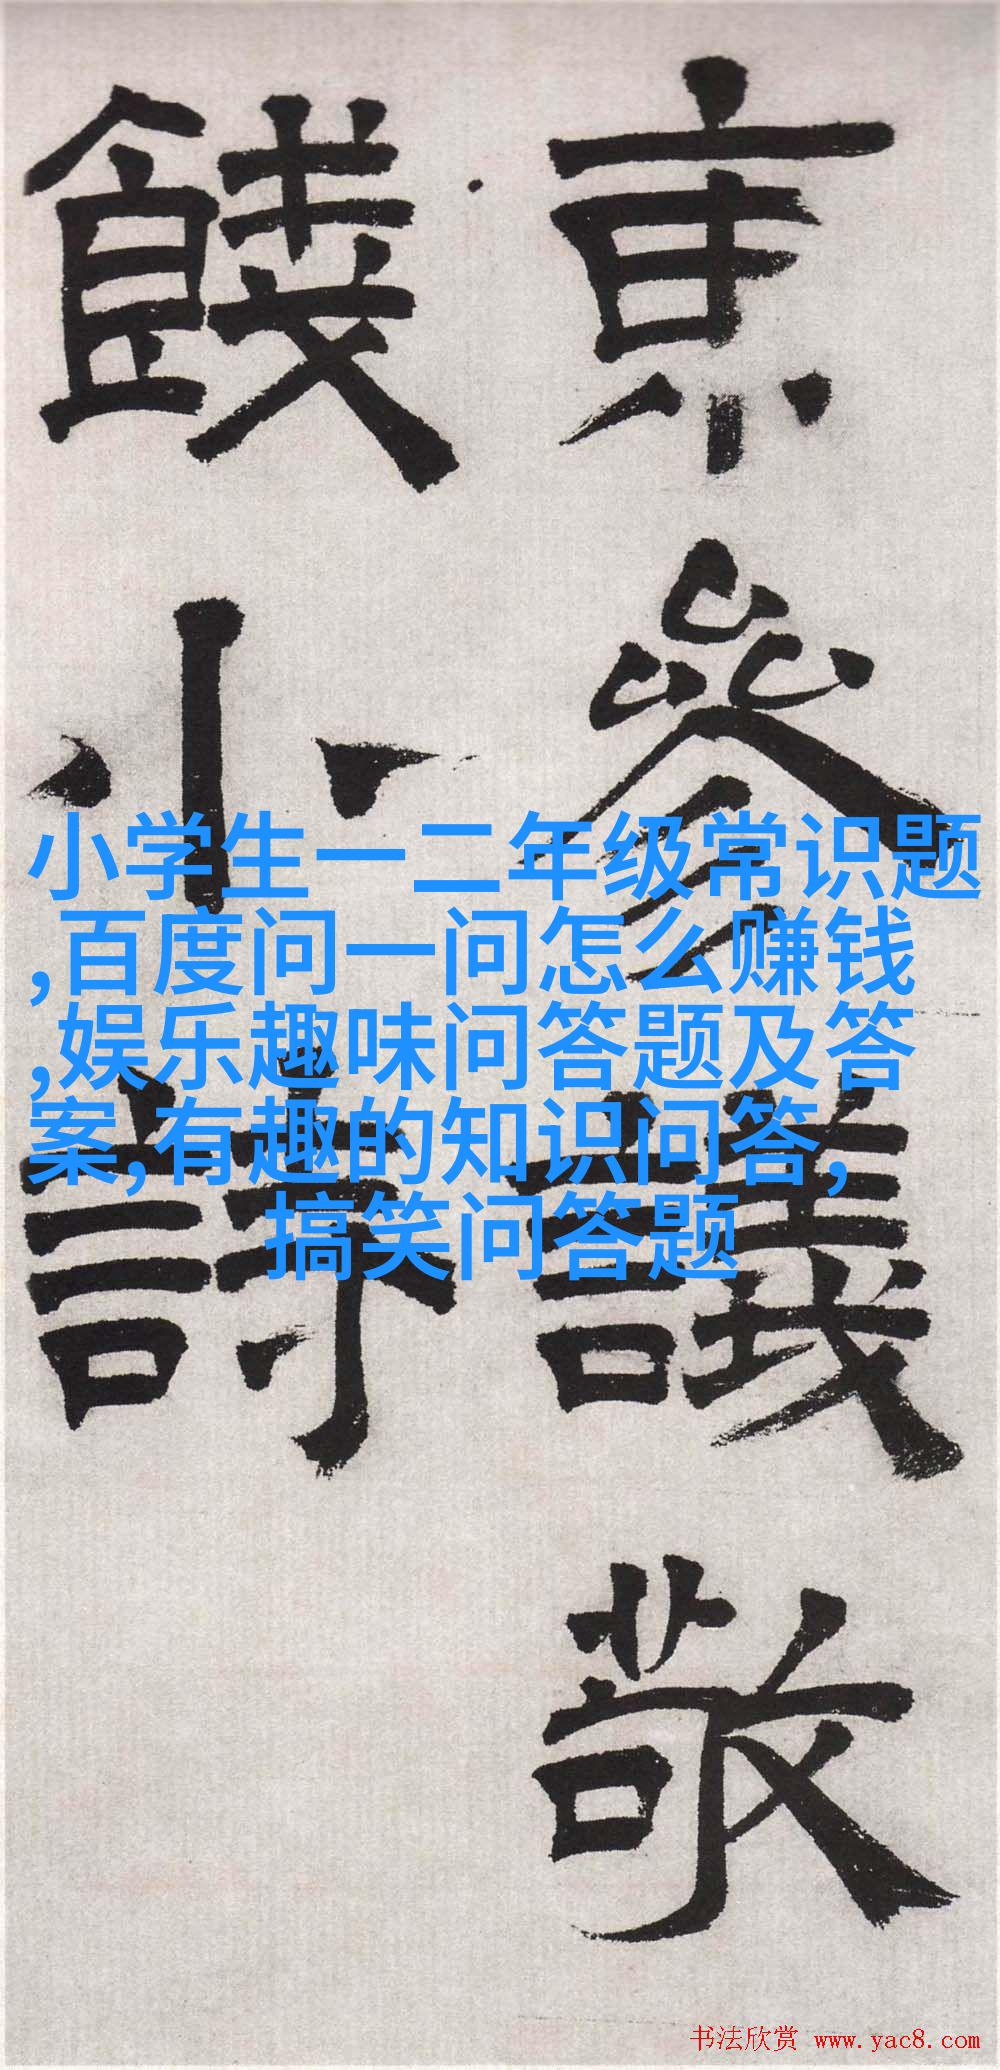 京參議敬
餞小詩
小学生一二年级常识题
,百度问一问怎么赚钱
,娱乐趣味问答题及答
案,有趣的知识问答,
搞笑问答题
书法欣赏 www.yac8.com